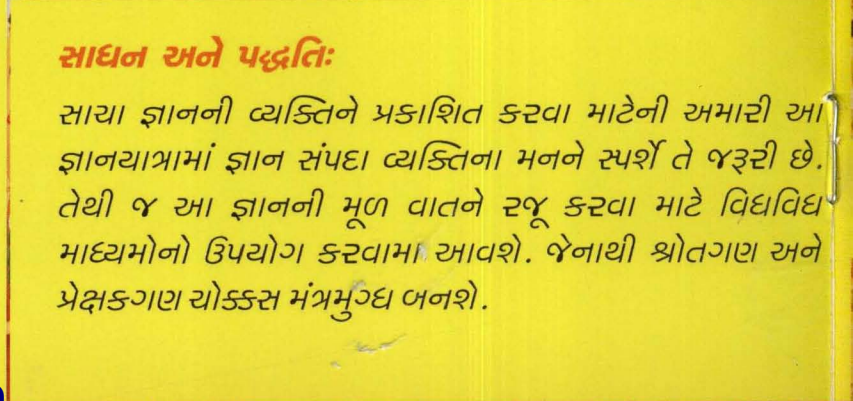 સાધન અને પદ્ધતિઃ
સાચા જ્ઞાનની વ્યક્તિને પ્રકાશિત કરવા માટેની અમારી આ
જ્ઞાનયાત્રામાં જ્ઞાન સંપદા વ્યક્તિના મનને સ્પર્શે તે જરૂરી છે.
તેથી જ આ જ્ઞાનની મૂળ વાતને રજૂ કરવા માટે વિધવિધ
માધ્યમોનો ઉપયોગ કરવામા આવશે. જેનાથી શ્રોતગણ અને
પ્રેક્ષકગણ ચોક્કસ મંત્રમુગ્ધ બનશે.